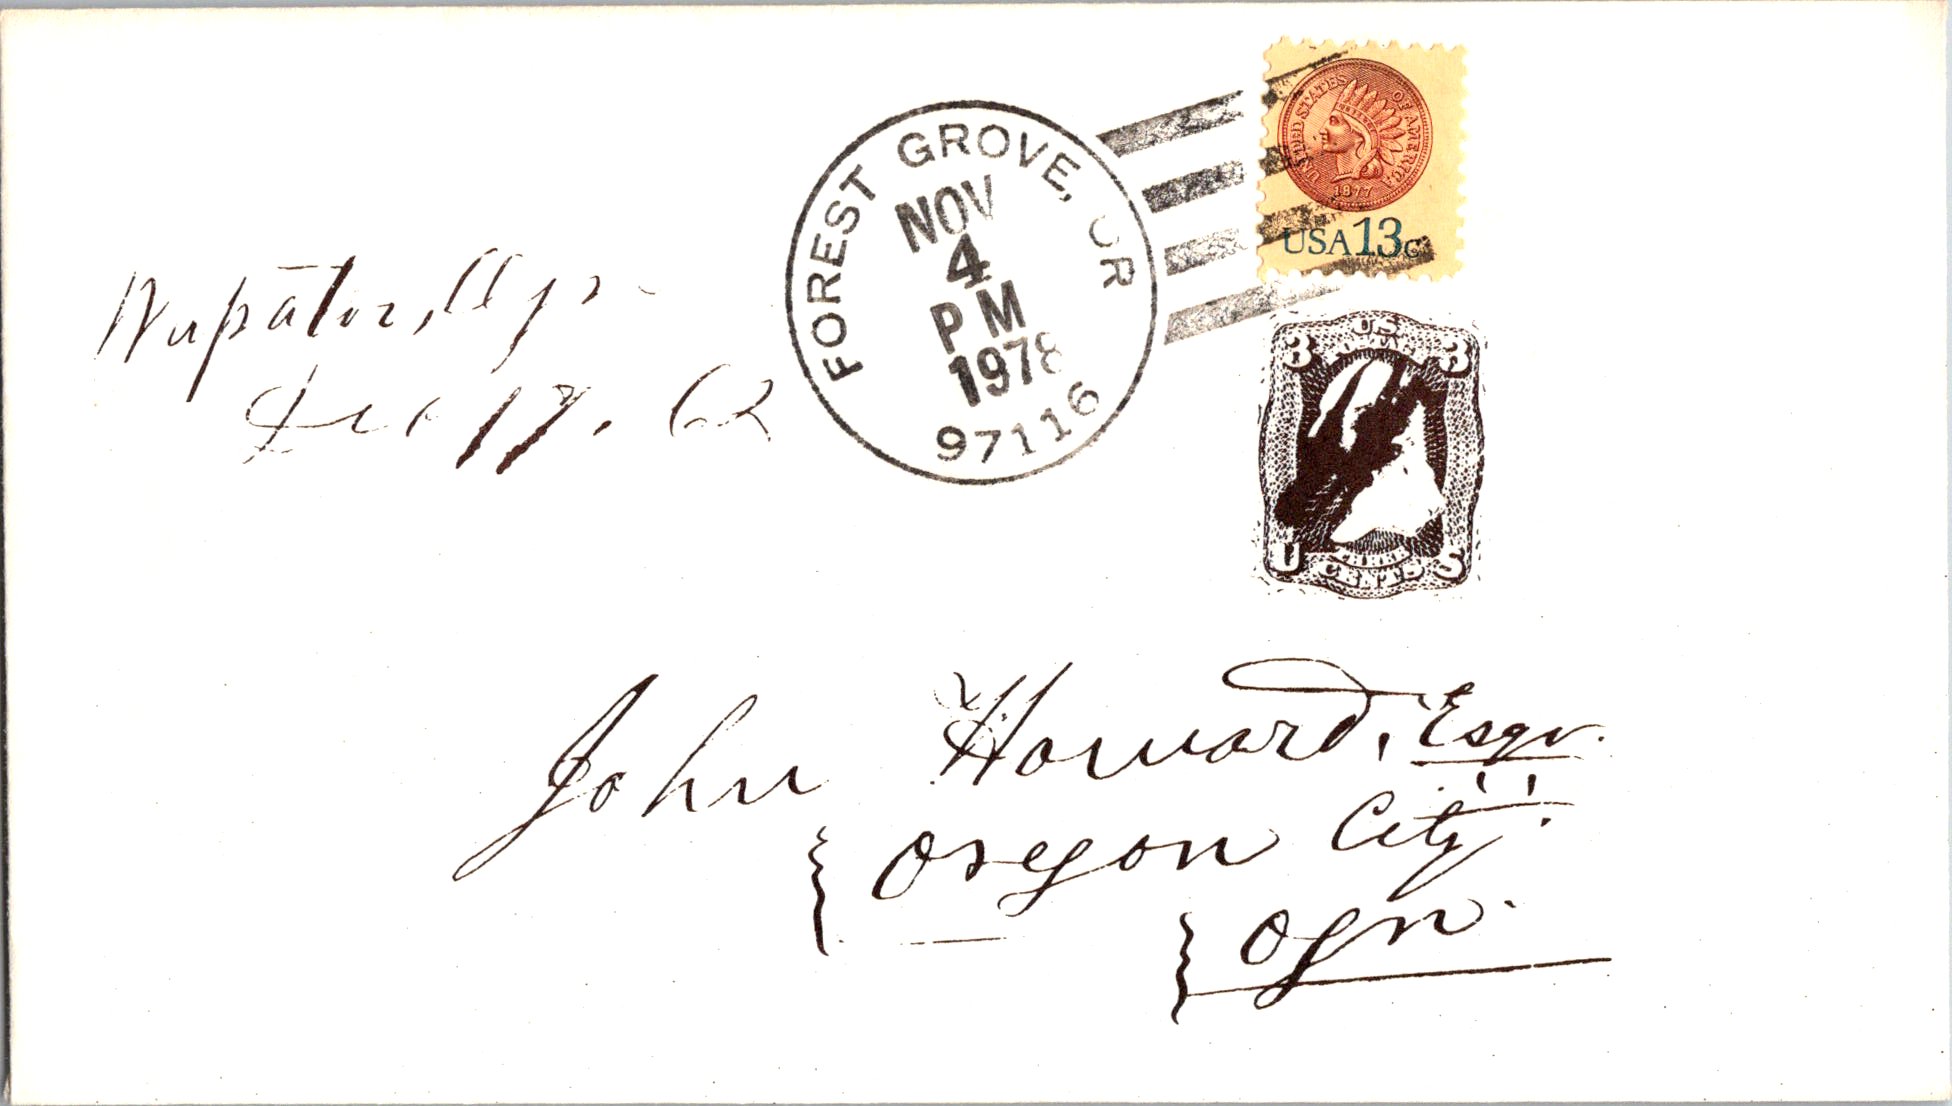 FOREST GROVE, OR
NOV
4
PM
1978
97116
UNITED STATES OF AMERICA
1877
USA 13c
Dec 17, 62
U.S.
3 3
U S
THREE
CENTS
John Howard, Esqr.
Oregon City
Ogn.